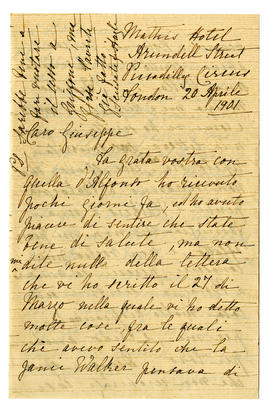 Mathis Hotel
Arundell Street
Piccadilly Circus
London 20 Aprile
1901
Caro Giuseppe
La grata vostra con
quella d'Alfonso ho ricevuto
pochi giorni fa, ed ho avuto
piacere di sentire che state
bene di salute, ma non
mi dite nulla della lettera
che vi ho scritto il 27 di
Marzo nella quale vi ho detto
molte cose, fra le quali
che avevo sentito che la
Janie Walker pensava di